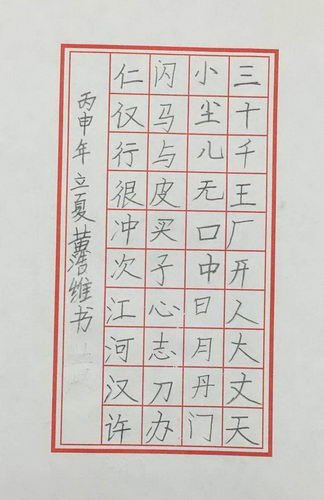 三十千王厂开人大丈天
小尘儿无口中日月丹门
闪马与皮买子心志刀办
仁仅行很冲次江河汉许
丙申年立夏黄浩维书